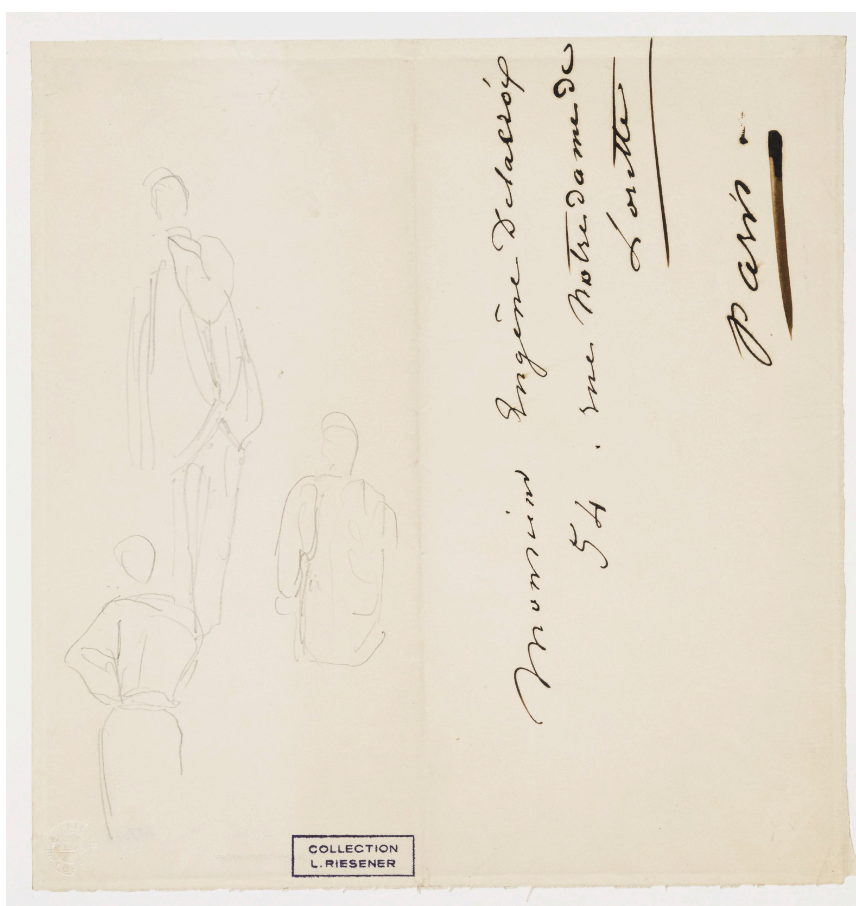 Monsieur Eugène Delacroix
54. rue Notre dame de
Lorette
Paris -
COLLECTION
L. RIESENER